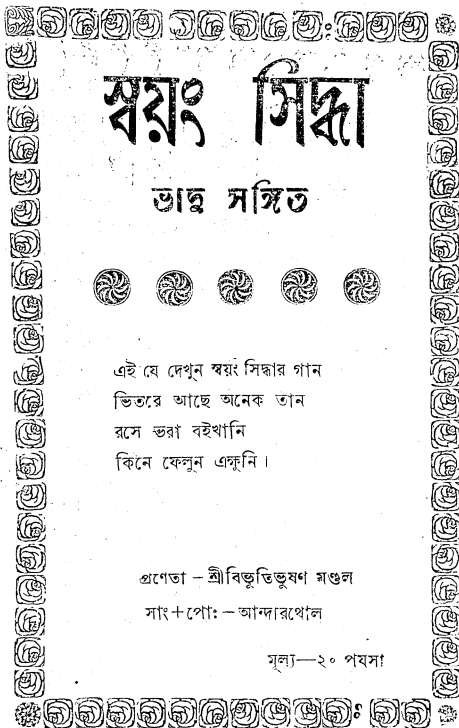 স্বয়ং সিদ্ধা
ভাদু সঙ্গিত
এই যে দেখুন স্বয়ং সিদ্ধার গান
ভিতরে আছে অনেক তান
রসে ভরা বইখানি
কিনে ফেলুন এক্ষুনি।
প্রণেতা – শ্রীবিভূতিভুষণ মণ্ডল
সাং+পো: – আন্দারথোল
মূল্য—২০ পযসা